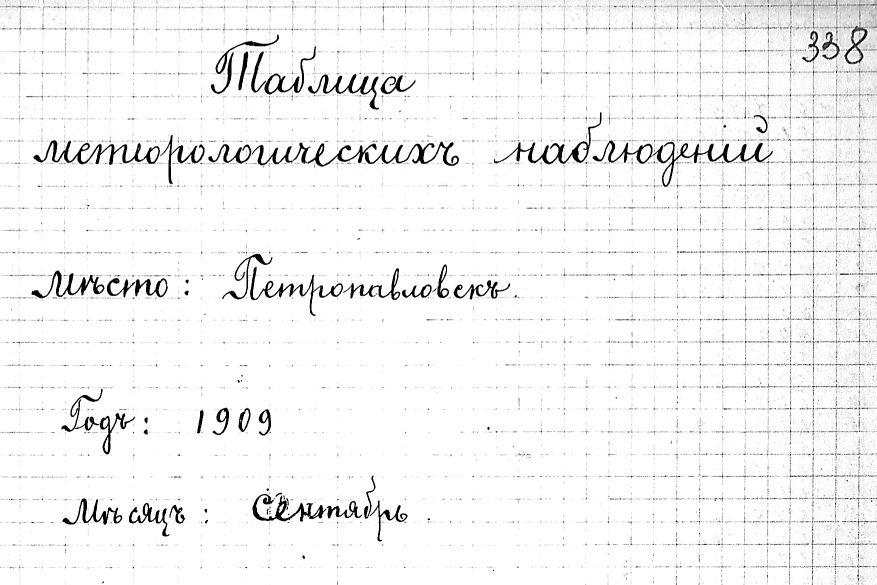 338
Таблица
метіорологическихъ наблюденій
Мѣсто: Петропавловскъ.
Годъ: 1909
Мѣсяцъ: Сентябрь.